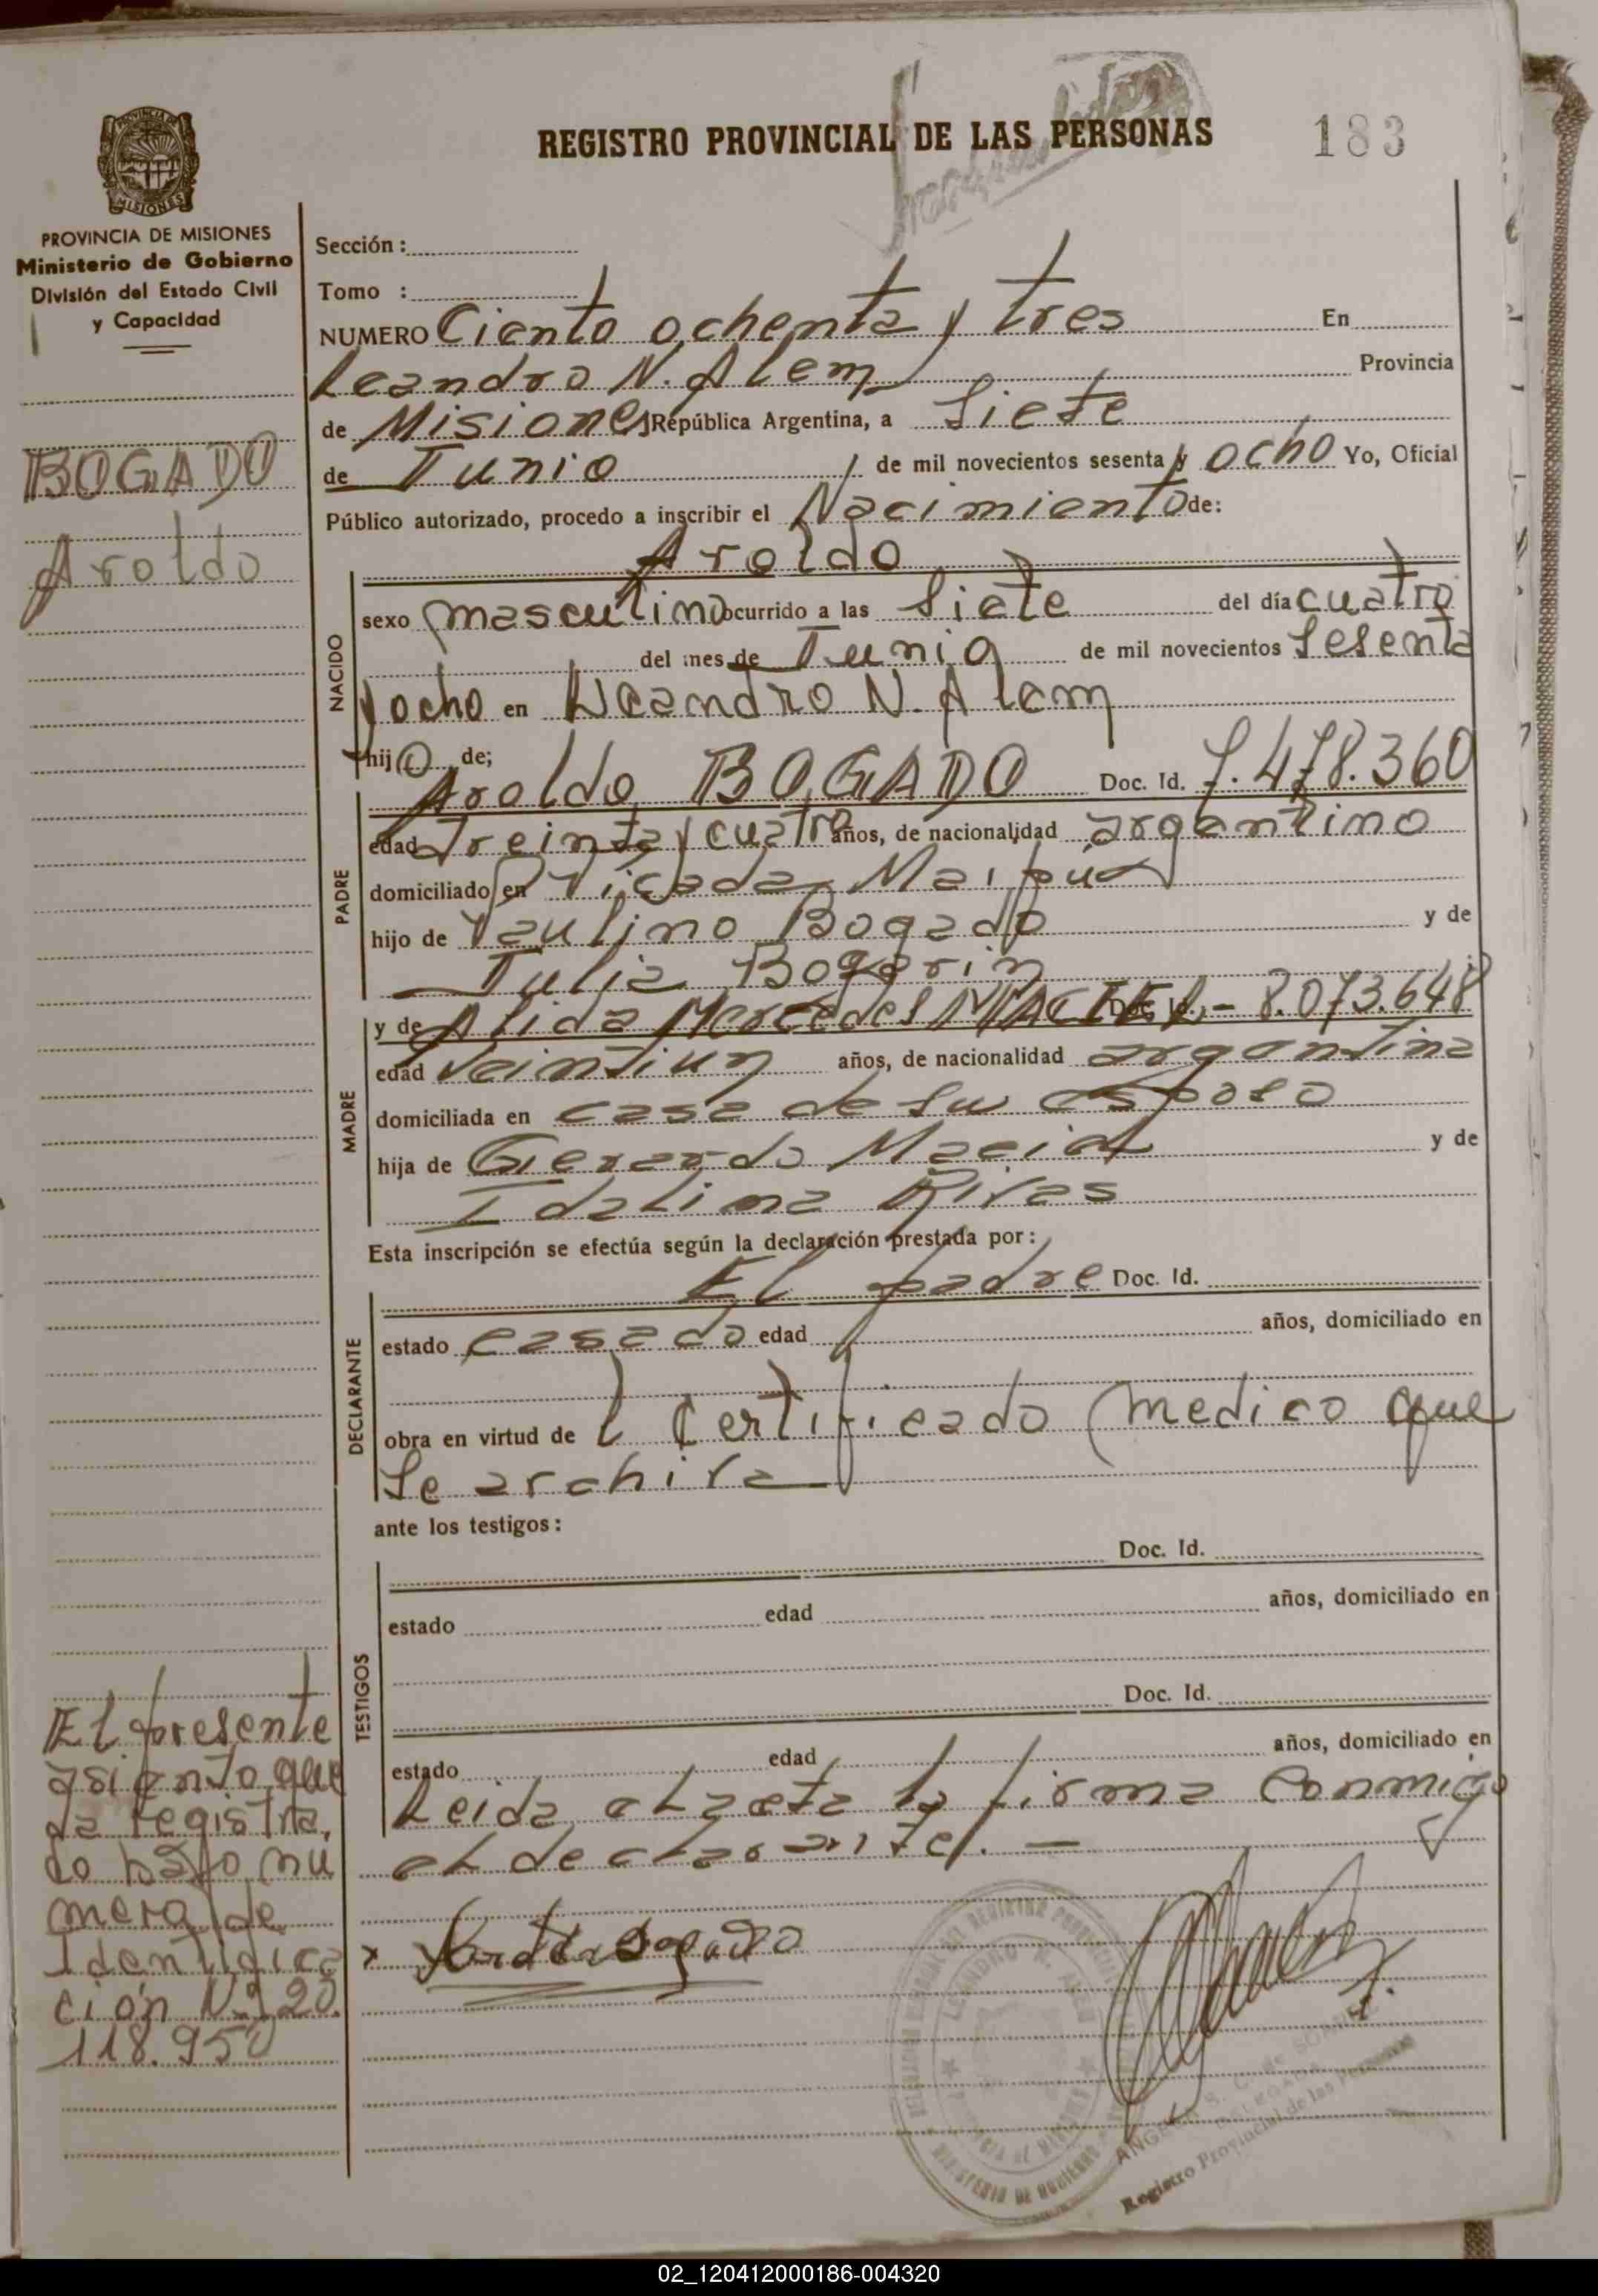 REGISTRO PROVINCIAL DE LAS PERSONAS
183
PROVINCIA DE MISIONES
Ministerio de Gobierno
División del Estado Civil
y Capacidad
BOGADO
Aroldo
Sección :
Tomo :
NUMERO Ciento ochenta y tres En
Leandro N. Alem Provincia
de Misiones República Argentina, a Siete
de Junio de mil novecientos sesenta y ocho Yo, Oficial
Público autorizado, procedo a inscribir el Nacimiento de:
Aroldo
NACIDO
sexo masculino ocurrido a las Siete del día cuatro
del mes de Junio de mil novecientos Sesenta
y ocho en Leandro N. Alem
hijo de;
PADRE
Aroldo BOGADO Doc. Id. 7.478.360
edad treinta y cuatro años, de nacionalidad argentino
domiciliado en Picada Maipú
hijo de Paulino Bogado y de
Julia Bogarin
MADRE
y de Alida Mercedes MACIEL Doc. Id. - 8.073.648
edad Veintiun años, de nacionalidad argentina
domiciliada en casa de su esposo
hija de Gerardo Maciel y de
Idalina Rivas
Esta inscripción se efectúa según la declaración prestada por:
DECLARANTE
El padre Doc. Id.
estado casado edad años, domiciliado en
obra en virtud de l Certificado medico que
Se archiva
ante los testigos:
TESTIGOS
Doc. Id.
estado edad años, domiciliado en
Doc. Id.
estado edad años, domiciliado en
Leida el acta la firma Conmigo
el declarante. —
x Bogado
El presente
asiento que
da registra,
do bajo nu
mero de
Identifica
ción Nº 20.
118.950
LEANDRO N. ALEM
MINISTERIO DE GOBIERNO
Registro Provincial de las Personas
02_120412000186-004320